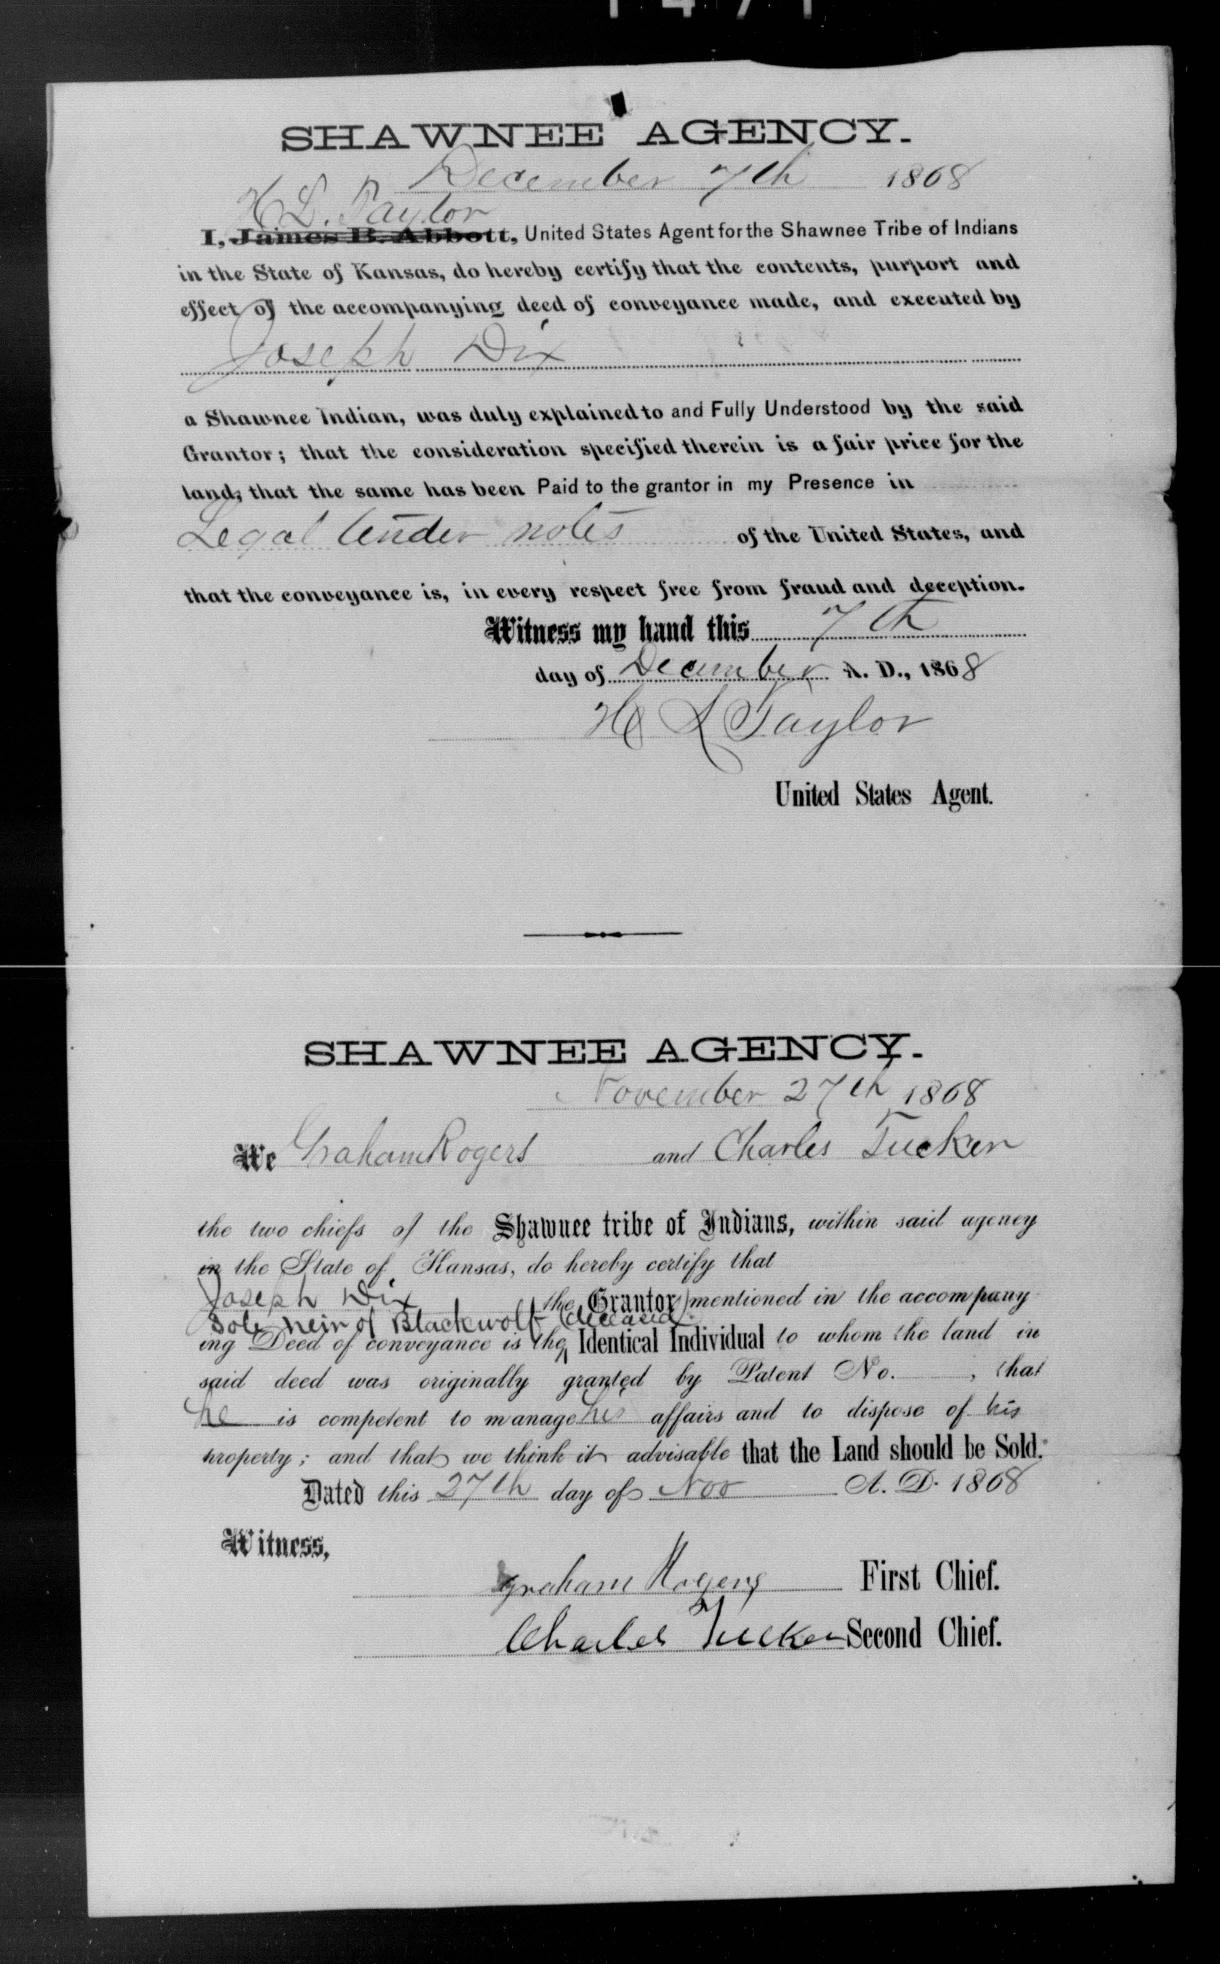 SHAWNEE AGENCY.
December 7th 1868
H L. Taylor
I, James B. Abbott, United States Agent for the Shawnee Tribe of Indians
in the State of Kansas, do hereby certify that the contents, purport and
effect of the accompanying deed of conveyance made, and executed by
Joseph Dix
a Shawnee Indian, was duly explained to and Fully Understood by the said
Grantor; that the consideration specified therein is a fair price for the
land; that the same has been Paid to the grantor in my Presence in
Legal tender notes of the United States, and
that the conveyance is, in every respect free from fraud and deception.
Witness my hand this 7th
day of December A. D., 1868
H L Taylor
United States Agent.
SHAWNEE AGENCY.
November 27th 1868
We Graham Rogers and Charles Tucker
the two chiefs of the Shawnee tribe of Indians, within said agency
in the State of Kansas, do hereby certify that
Joseph Dix the Grantor mentioned in the accompany
Sole heir of Blackwolf deceased
ing Deed of conveyance is the Identical Individual to whom the land in
said deed was originally granted by Patent No. , that
he is competent to manage his affairs and to dispose of his
property; and that we think it advisable that the Land should be Sold.
Dated this 27th day of Nov A. D. 1868
Witness,
Graham Rogers First Chief.
Charles Tucker Second Chief.